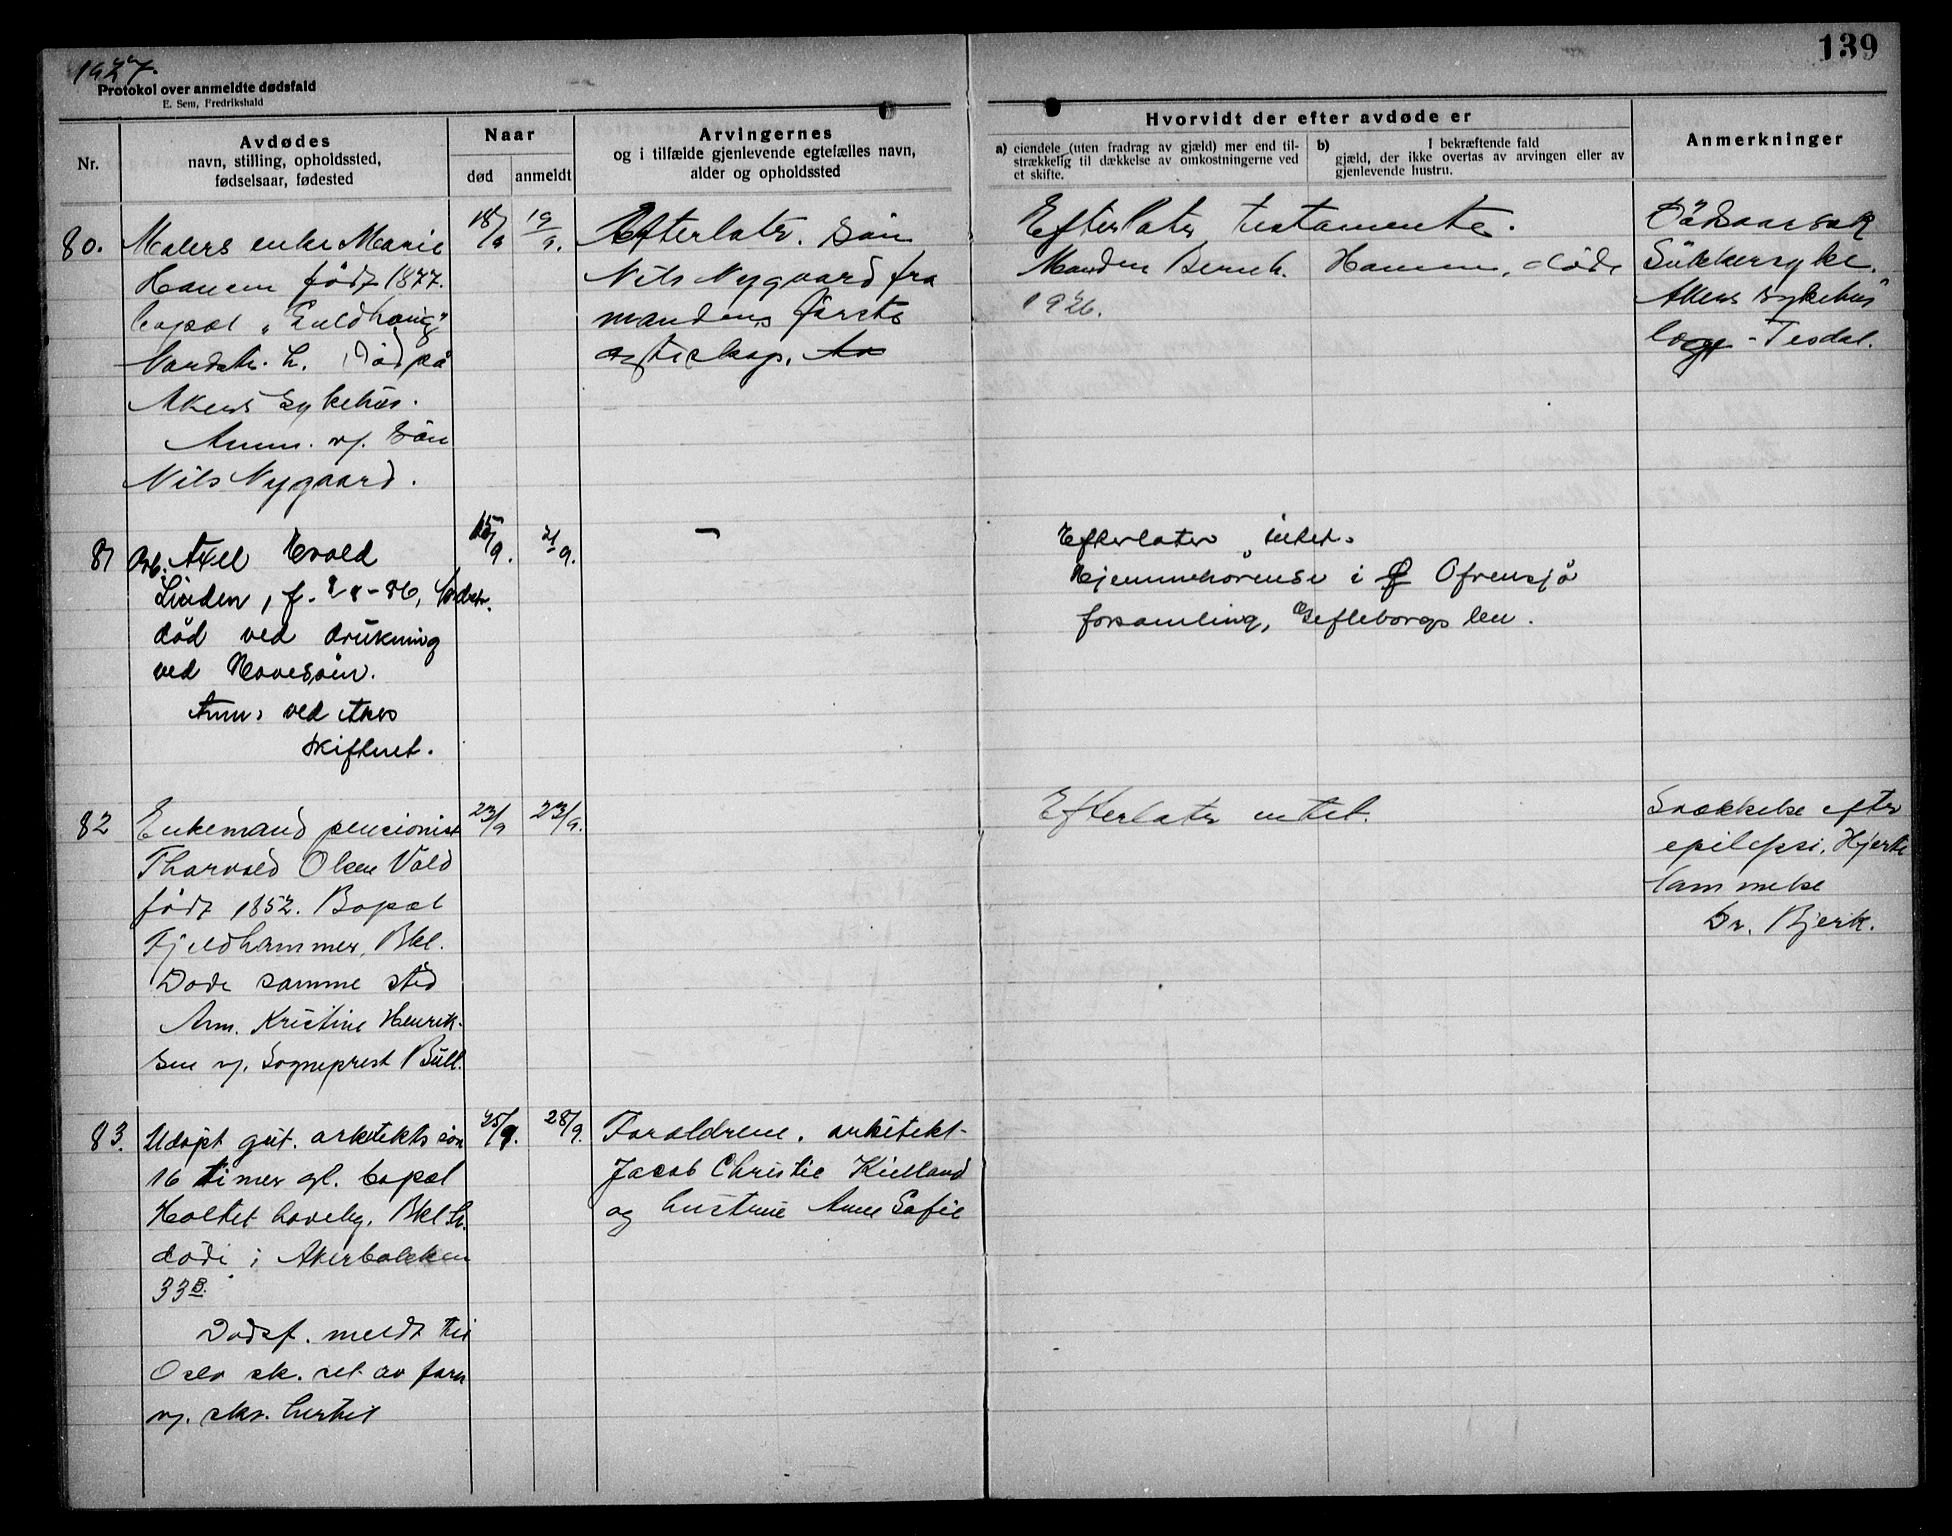 1927.
139
Protokol over anmeldte dødsfald
E. Sem, Fredrikshald
Nr.
Avdødes
navn, stilling, opholdssted,
fødselsaar, fødested
Naar
død
anmeldt
Arvingernes
og i tilfælde gjenlevende egtefælles navn,
alder og opholdssted
Hvorvidt der efter avdøde er
a) eiendele (uten fradrag av gjæld) mer end til-
strækkelig til dækkelse av omkostningerne ved
et skifte.
b) I bekræftende fald
gjæld, der ikke overtas av arvingen eller av
gjenlevende hustru.
Anmerkninger
80.
Malers enke Marie
Hansen født 1877.
bopæl
Nordstr. h. Død på
Akers Sykehus.
Anm. v/. Søn
Nils Nygaard.
18/9
19/9.
Efterlater. Søn
Nils Nygaard fra
mandens første
egteskap.
Efterlater testamente.
Manden Bernh. Hansen, døde
1926.
Dødsaarsak
Sukkersyke.
Akers sykehus
læge - Tesdal.
81
Arb. Axel Evald
Linden, f.
død ved drukning
ved Hovedøin.
Anm. ved Akers
skifteret.
15/9.
21/9.
-
Efterlater intet.
Hjemmehørende i Ofvensjø
forsamling, Gefleborgs len.
82
Enkemand pensionist
Thorvald Olsen Vold
født 1852. Bopæl
Fjeldhammer, Bkl.
Døde samme sted
Anm. Kristine Henrik-
sen v/. Sogneprest Bull.
23/9
23/9.
Efterlater intet.
Svækkelse efter
epilepsi. Hjerte
lammelse
Dr. Bjerk.
83.
Udøpt gut. arkitekts søn
16 timer gl. bopæl
Holtet haveby, Bkl. h.
døde i Akerbakken
33B.
Dødsf. meldt til
Oslo sk. ret av faren
v/. skr. hertil
25/9.
28/9.
Forældrene. arkitekt
Jacob Christie Kielland
og hustrue Anne Sofie